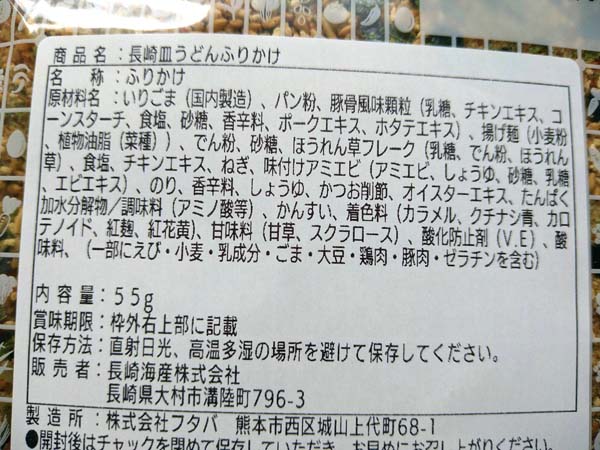 商品名：長崎皿うどんふりかけ
名　称：ふりかけ
原材料名：いりごま（国内製造）、パン粉、豚骨風味顆粒（乳糖、チキンエキス、コ
ーンスターチ、食塩、砂糖、香辛料、ポークエキス、ホタテエキス）、揚げ麺（小麦粉
、植物油脂（菜種））、でん粉、砂糖、ほうれん草フレーク（乳糖、でん粉、ほうれん
草）、食塩、チキンエキス、ねぎ、味付けアミエビ（アミエビ、しょうゆ、砂糖、乳糖
、エビエキス）、のり、香辛料、しょうゆ、かつお削節、オイスターエキス、たんぱく
加水分解物／調味料（アミノ酸等）、かんすい、着色料（カラメル、クチナシ青、カロ
テノイド、紅麹、紅花黄）、甘味料（甘草、スクラロース）、酸化防止剤（V.E）、酸
味料、（一部にえび・小麦・乳成分・ごま・大豆・鶏肉・豚肉・ゼラチンを含む）
内容量：55g
賞味期限：枠外右上部に記載
保存方法：直射日光、高温多湿の場所を避けて保存してください。
販売者：長崎海産株式会社
長崎県大村市溝陸町796-3
製造所：株式会社フタバ　熊本市西区城山上代町68-1
●開封後はチャックを閉めて保存していただき、お早めにお召し上がりください。